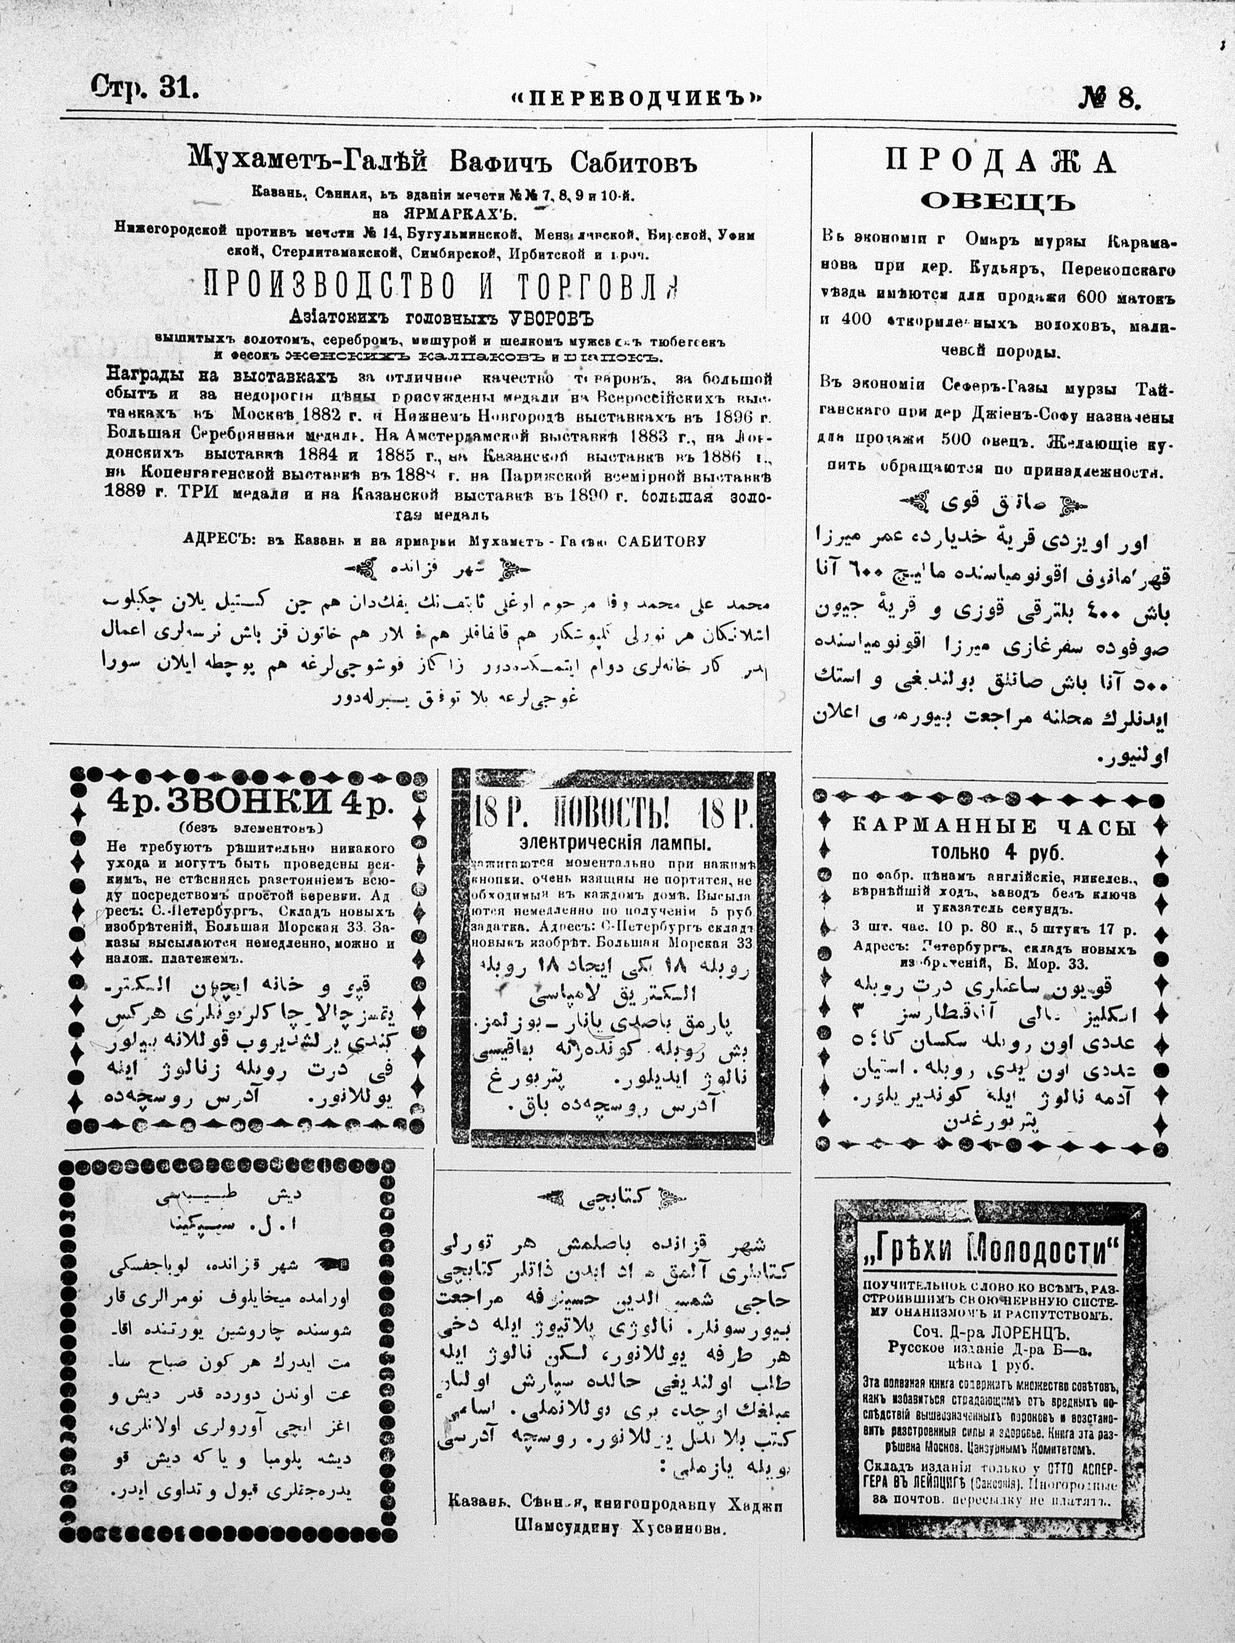 Стр. 31.
«ПЕРЕВОДЧИКЪ»
№ 8.
Мухаметъ-Галѣй Вафичъ Сабитовъ
Казань, Сѣнная, въ зданіи мечети №№ 7, 8, 9 и 10-й.
на ЯРМАРКАХЪ.
Нижегородской противъ мечети № 14, Бугульминской, Мензелинской, Бирской, Уфим
ской, Стерлитамакской, Симбирской, Ирбитской и проч.
ПРОИЗВОДСТВО И ТОРГОВЛЯ
Азіатскихъ головныхъ УБОРОВЪ
вышитыхъ золотомъ, серебромъ, мишурой и шелкомъ мужскихъ тюбетеекъ
и фесокъ женскихъ калпаковъ и шапокъ.
Награды на выставкахъ за отличное качество товаровъ, за большой
сбытъ и за недорогія цѣны присуждены медали на Всероссійскихъ выс-
тавкахъ въ Москвѣ 1882 г. и Нижнемъ Новгородѣ выставкахъ въ 1896 г.
Большая Серебрянная медаль. На Амстердамской выставкѣ 1883 г., на Лон-
донскихъ выставкѣ 1884 и 1885 г., на Казанской выставкѣ въ 1886 г.,
на Копенгагенской выставкѣ въ 1888 г. на Парижской всемірной выставкѣ
1889 г. ТРИ медали и на Казанской выставкѣ въ 1890 г. большая золо-
тая медаль
АДРЕСЪ: въ Казань и на ярмарки Мухаметъ-Галѣю САБИТОВУ
شهر قزانده
محمد علی محمد وفا مرحوم اوغلی هم چن کستیل یلان چکیلوب
اشلانکان هر نورلی کلپوشکار هم قالفاقلر هم هم خاتون قز باش نرسه‌لری اعمال
کار خانه‌لری دوام فوشوچی‌لرغه هم پوچطه ایلان سورا
غوچی‌لرغه بلا توفق یبیرله‌دور
ПРОДАЖА
ОВЕЦЪ
Въ экономіи г Омаръ мурзы Карама-
нова при дер. Кудьяръ, Перекопскаго
уѣзда имѣются для продажи 600 матокъ
и 400 откормленныхъ волоховъ, мали-
чевой породы.
Въ экономіи Сеферъ-Газы мурзы Тай-
ганскаго при дер Джіенъ-Софу назначены
для продажи 500 овецъ. Желающіе ку-
пить обращаются по принадлежности.
صاتلق قوی
اور اویزدی قریهٔ خدیارده عمر میرزا
قهرمانوف اقونومیاسنده مالیچ ٦٠٠ آنا
باش ٤٠٠ بلترقی قوزی و قریهٔ جیون
صوفوده سفرغازی میرزا اقونومیاسنده
٥٠٠ آنا باش صاتلق بولندیغی و استك
ایدنلرك محلنه مراجعت بیورمه‌سی اعلان
اولنیور.
4 р. ЗВОНКИ 4 р.
(безъ элементовъ)
Не требуютъ рѣшительно никакого
ухода и могутъ быть проведены вся-
кимъ, не стѣсняясь разстояніемъ всю-
ду посредствомъ простой веревки. Ад
ресъ: С.-Петербургъ, Складъ новыхъ
изобрѣтеній, Большая Морская 33. За-
казы высылаются немедленно, можно и
налож. платежемъ.
قپو و خانه ایچون الکتر-
یقسز چالار چاکلریونلری هرکس
کندی یرلشدیروب قوللانه بیلور
فی درت روبله زنالوژ ایله
یوللانور. آدرس روسچه‌ده
18 Р. НОВОСТЬ! 18 Р.
электрическія лампы.
зажигаются моментально при нажимѣ
кнопки, очень изящны не портятся, не
обходимыя въ каждомъ домѣ. Высыла
ются немедленно по полученіи 5 руб
задатка. Адресъ: С-Петербургъ складъ
новыхъ изобрѣт. Большая Морская 33
روبله ١٨ یکی ایجاد ١٨ روبله
الکتریق لامپاسی
پارمق باصدی یانار — بوزلمز.
بش روبله کوندرانه باقیسی
نالوژ ایدیلور. پتربورغ
آدرس روسچه‌ده باق.
КАРМАННЫЕ ЧАСЫ
только 4 руб.
по фабр. цѣнамъ англійскіе, никелев.,
вѣрнѣйшій ходъ, заводъ безъ ключа
и указатель секундъ.
3 шт. час. 10 р. 80 к., 5 штукъ 17 р.
Адресъ: Петербургъ, складъ новыхъ
изобрѣтеній, Б. Мор. 33.
قویون ساعتلری درت روبله
انکلیز مالی آناقطارسز ٣
عددی اون روبله سکسان کاپ؛ ٥
عددی اون یدی روبله. استیان
آدمه نالوژ ایله کوندیریلور.
پتربورغدن
دیش طبیبی
ا. ل. سیپکینا
شهر قزانده، لوباچفسکی
اورامده میخایلوف نومرالری قار
شوسنده چاروشین یورتنده اقا-
مت ایدرك هر کون صباح سا-
عت اوندن دورده قدر دیش و
اغز ایچی آورولری اولانلری،
دیشه پلومبا و یا که دیش قو
یدره‌جقلری قبول و تداوی ایدر.
کتابچی
شهر قزانده باصلمش هر تورلی
کتابلری آلمق مراد ایدن ذاتلر کتابچی
حاجی شمس الدین حسینوفه مراجعت
بیورسونلر. نالوژی پلاتیوژ ایله دخی
هر طرفه یوللانور، لکن نالوژ ایله
طلب اولندیغی حالده سپارش اولنان
مبلغك اوچده بری یوللانملی. اسامی
کتب بلا بدل یوللانور. روسچه آدرسی
بویله یازملی:
Казань, Сѣнная, книгопродавцу Хаджи
Шамсуддину Хусаинова.
„Грѣхи Молодости“
ПОУЧИТЕЛЬНОЕ СЛОВО КО ВСѢМЪ, РАЗ-
СТРОИВШИМЪ СВОЮ НЕРВНУЮ СИСТЕ-
МУ ОНАНИЗМОМЪ И РАСПУТСТВОМЪ.
Соч. Д-ра ЛОРЕНЦЪ.
Русское изданіе Д-ра Б—а.
цѣна 1 руб.
Эта полезная книга содержатъ множество совѣтовъ,
какъ избавиться страдающемъ отъ вредныхъ по-
слѣдствій вышеозначенныхъ пороковъ и возстано-
вить разстроенныя силы и здоровье. Книга эта раз-
рѣшена Москов. Цензурнымъ Комитетомъ.
Складъ изданія только у ОТТО АСПЕР-
ГЕРА ВЪ ЛЕЙПЦИГѢ (Саксонія). Иногородные
за почтов. пересылку не платятъ.